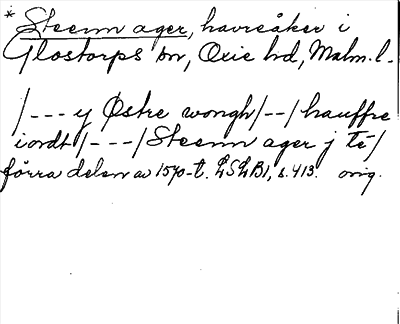 * Steenn ager, havreåker i
Glostorps sn, Oxie hd, Malm. l.
/--- y Østre wongh/--/hauffre
iordt/---/Steenn ager j te/
förra delen av 1570-t. LSLB1, s. 413. orig.